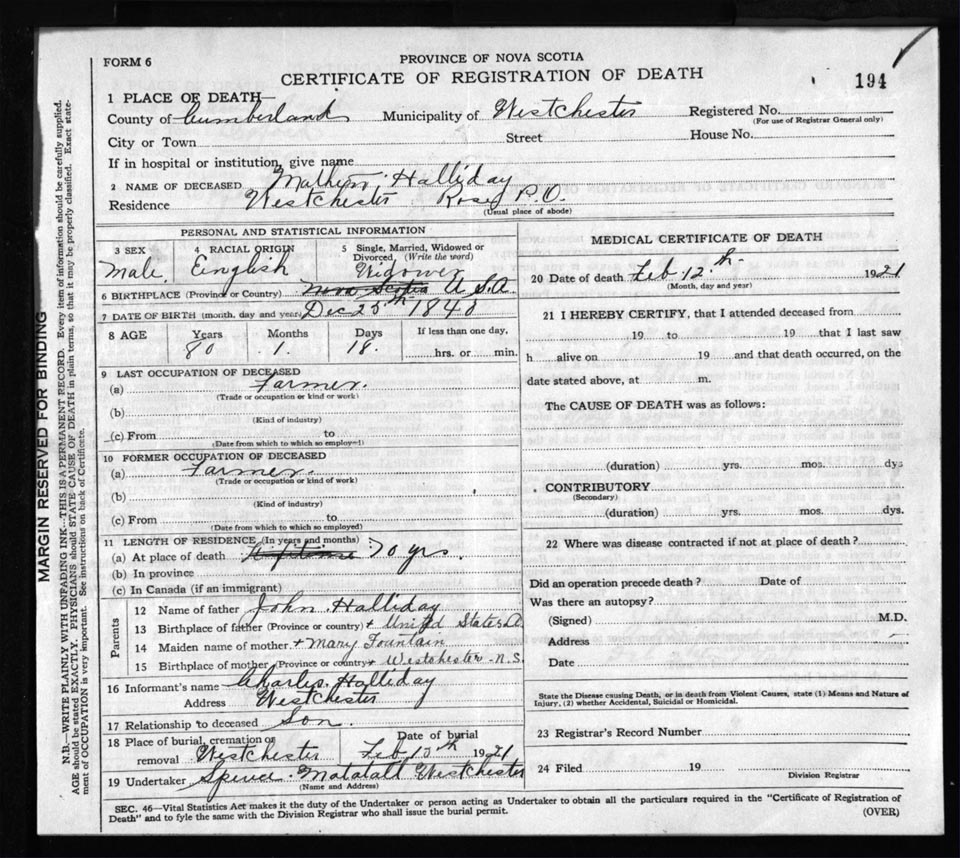 FORM 6
PROVINCE OF NOVA SCOTIA
CERTIFICATE OF REGISTRATION OF DEATH
194
1 PLACE OF DEATH—
County of Cumberland Municipality of Westchester Registered No.
(For use of Registrar General only)
City or Town Street House No.
If in hospital or institution, give name
2 NAME OF DECEASED Halliday
Residence Westchester Rose P.O.
(Usual place of abode)
PERSONAL AND STATISTICAL INFORMATION
3 SEX 4 RACIAL ORIGIN 5 Single, Married, Widowed or Divorced, (Write the word)
Male English Widower
6 BIRTHPLACE (Province or Country) Nova Scotia U.S.A.
7 DATE OF BIRTH (month, day and year) Dec 25th 1840
8 AGE Years Months Days If less than one day,
80 1. 18. hrs. or min.
9 LAST OCCUPATION OF DECEASED
(a) Farmer.
(Trade or occupation or kind or work)
(b)
(Kind of industry)
(c) From to
(Date from which to which so employed)
10 FORMER OCCUPATION OF DECEASED
(a) Farmer.
(Trade or occupation or kind of work)
(b)
(Kind of industry)
(c) From to
(Date from which to which so employed)
11 LENGTH OF RESIDENCE (In years and months)
(a) At place of death 70 yrs.
(b) In province
(c) In Canada (if an immigrant)
Parents
12 Name of father John Halliday
13 Birthplace of father (Province or country) + United States A
14 Maiden name of mother. + Mary Fountain
15 Birthplace of mother (Province or country) + Westchester N.S.
16 Informant's name Charles. Halliday
Address Westchester
17 Relationship to deceased Son.
18 Place of burial, cremation or removal Westchester Date of burial Feb 15th 1921
19 Undertaker Matatall Westchester
(Name and Address)
MEDICAL CERTIFICATE OF DEATH
20 Date of death Feb. 12.th 1921
(Month, day and year)
21 I HEREBY CERTIFY, that I attended deceased from
19 to 19 that I last saw
h alive on 19 and that death occurred, on the
date stated above, at m.
The CAUSE OF DEATH was as follows:
(duration) yrs. mos. dys
CONTRIBUTORY
(Secondary)
(duration) yrs. mos. dys.
22 Where was disease contracted if not at place of death?
Did an operation precede death? Date of
Was there an autopsy?
(Signed) M.D.
Address
Date
State the Disease causing Death, or in death from Violent Causes, state (1) Means and Nature of
Injury, (2) whether Accidental, Suicidal or Homicidal.
23 Registrar's Record Number
24 Filed 19
Division Registrar
SEC. 46—Vital Statistics Act makes it the duty of the Undertaker or person acting as Undertaker to obtain all the particulars required in the "Certificate of Registration of
Death" and to fyle the same with the Division Registrar who shall issue the burial permit.
(OVER)
MARGIN RESERVED FOR BINDING
N.B.—WRITE PLAINLY WITH UNFADING INK—THIS IS A PERMANENT RECORD. Every item of information should be carefully supplied.
AGE should be stated EXACTLY. PHYSICIANS should STATE CAUSE OF DEATH in plain terms, so that it may be properly classified. Exact state-
ment of OCCUPATION is very important. See instructions on back of Certificate.